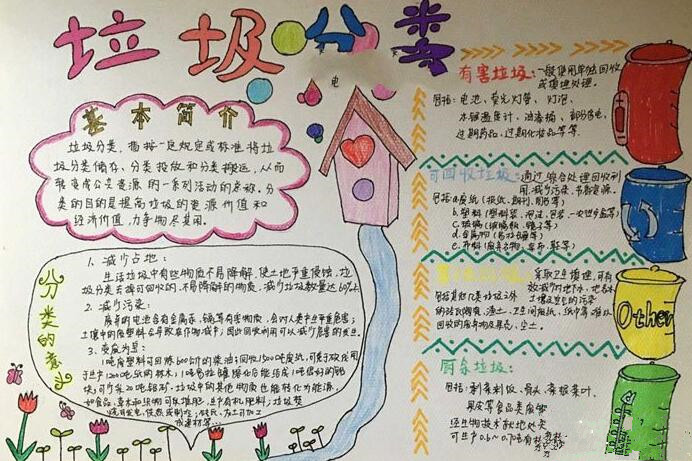 垃圾分类
电
基本简介
垃圾分类，指按一定规定或标准将垃
圾分类储存、分类投放和分类搬运，从而
转变成公共资源的一系列活动的总称。分
类的目的是提高垃圾的资源价值和
经济价值，力争物尽其用。
分类的意义
1、减少占地：
生活垃圾中有些物质不易降解，使土地严重侵蚀，垃
圾分类去掉可回收的、不易降解的物质，减少垃圾数量达60%
2、减少污染：
废弃的电池含有金属汞、镉等有害物质，会对人类产生严重危害；
土壤中的废塑料会导致农作物减产；因此回收利用可以减少危害的发生。
3、变废为宝：
1吨废塑料可回炼600公斤的柴油；回收1500吨废纸，可免于砍伐用
于生产1200吨纸的林木；
可节省20吨铝矿。垃圾中的其他物质也能转化为能源，
如食品、草木和织物可以堆肥，生产有机肥料；垃圾焚
烧可发电、
有害垃圾：一般使用单独回收
或填埋处理。
包括：电池、荧光灯管、灯泡、
水银温度计、油漆桶、部分家电、
过期药品、过期化妆品等等
可回收垃圾：通过综合处理回收利
用，减少污染，节省资源。
包括a.废纸（报纸、期刊、
b.塑料（塑料袋、
c.玻璃（玻璃瓶、镜子等）
d.金属物（易拉罐等）
e.布料（
采取卫生填埋，可有
效减少对地下水、地表水、
土壤及空气的污染
包括除
的砖瓦陶瓷、渣土、卫生间废纸、纸巾等难以
回收的废弃物及果壳、尘土。
Other
厨余垃圾：
包括：剩菜剩饭、骨头、菜根菜叶、
果皮等食品类废物
经生物技术就地处
可生产0.6~0.7吨有机